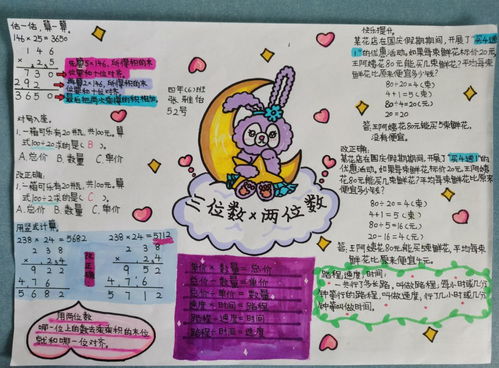 估一估,算一算。
146×25=3650
1 4 6
× 2 5
7 3 0
2 9 2
3 6 5 0
先算5×146,所得积的末
位要和个位对齐。
再算2×146,所得积的末
位要和十位对齐。
最后把两次乘得的积相加。
对号入座。
1.一箱可乐有20瓶,共100元。算
式100÷20求的是(B)。
A.总价 B.数量 C.单价
改正确:
1.一箱可乐有20瓶,共100元。算
式100÷20求的是(C)。
A.总价 B.数量 C.单价
用竖式计算。
238×24=5682
2 3 8
× 2 4
9 2 2
4 7 6
5 6 8 2
改正确
238×24=5712
2 3 8
× 2 4
9 5 2
4 7 6
5 7 1 2
用两位数
哪一位上的数去乘乘积的末位
就和哪一位对齐。
四年(6)班
张雅怡
52号
三位数×两位数
单价×数量=总价
总价÷数量=单价
总价÷单价=数量
速度×时间=路程
路程÷速度=时间
路程÷时间=速度
快乐提升。
某花店在国庆假期期间,开展了“买4送
1”的优惠活动。如果每束鲜花标价20元,
王阿姨花80元能买几束鲜花?平均每束
鲜花比原来便宜多少钱?
80÷20=4(束)
4+1=5(束)
80÷4=20(元)
20=20
答:王阿姨花80元能买5束鲜花,
没有便宜。
改正确:
某花店在国庆假期期间,开展了“买4送1”的
优惠活动。如果每束鲜花标价20元,王阿姨
花80元能买几束鲜花?平均每束鲜花比原来
便宜多少钱?
80÷20=4(束)
4+1=5(束)
80÷5=16(元)
20-16=4(元)
答:王阿姨花80元能买5束鲜花,平均每束
鲜花比原来便宜4元。
路程,速度,时间。
一共行了多长路,叫做路程。每小时或每分
钟等行的路程,叫做速度,行了几小时或几分
钟等叫做时间。